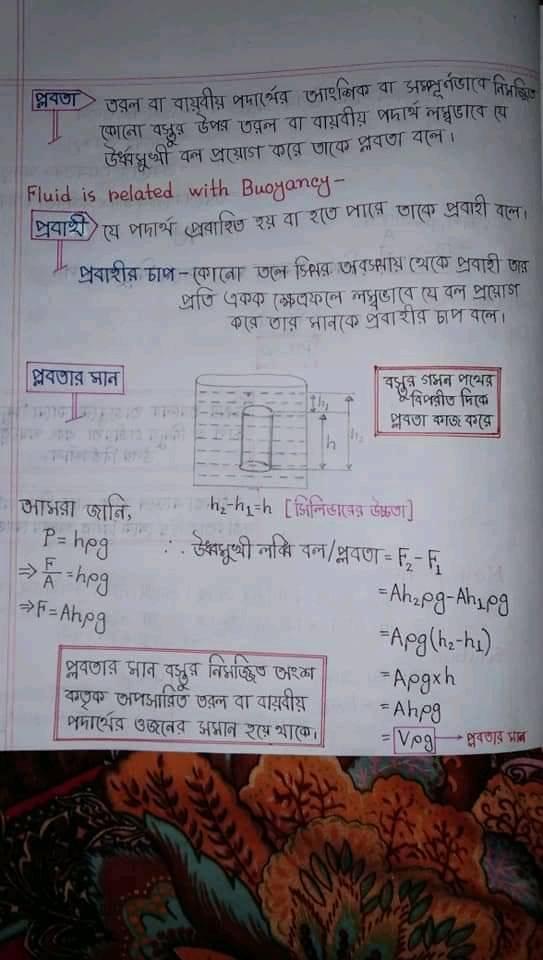 প্লবতা তরল বা বায়বীয় পদার্থের আংশিক বা সম্পূর্নভাবে নিমজ্জিত
কোনো বস্তুর উপর তরল বা বায়বীয় পদার্থ লম্বভাবে যে
উর্ধ্বমুখী বল প্রয়োগ করে তাকে প্লবতা বলে।
Fluid is related with Buoyancy-
প্রবাহী যে পদার্থ প্রবাহিত হয় বা হতে পারে তাকে প্রবাহী বলে।
প্রবাহীর চাপ - কোনো তলে স্থির অবস্থায় থেকে প্রবাহী তার
প্রতি একক ক্ষেত্রফলে লম্বভাবে যে বল প্রয়োগ
করে তার মানকে প্রবাহীর চাপ বলে।
প্লবতার মান
h₁
h
h₂
বস্তুর গমন পথের
বিপরীত দিকে
প্লবতা কাজ করে
আমরা জানি,
P = hρg
⇒ F/A = hρg
⇒ F = Ahρg
h₂-h₁=h [সিলিন্ডারের উচ্চতা]
∴ উর্ধ্বমুখী লব্ধি বল/প্লবতা = F₂ - F₁
= Ah₂ρg - Ah₁ρg
= Aρg(h₂-h₁)
= Aρg×h
= Ahρg
= Vρg → প্লবতার মান
প্লবতার মান বস্তুর নিমজ্জিত অংশ
কতৃক অপসারিত তরল বা বায়বীয়
পদার্থের ওজনের সমান হয়ে থাকে।